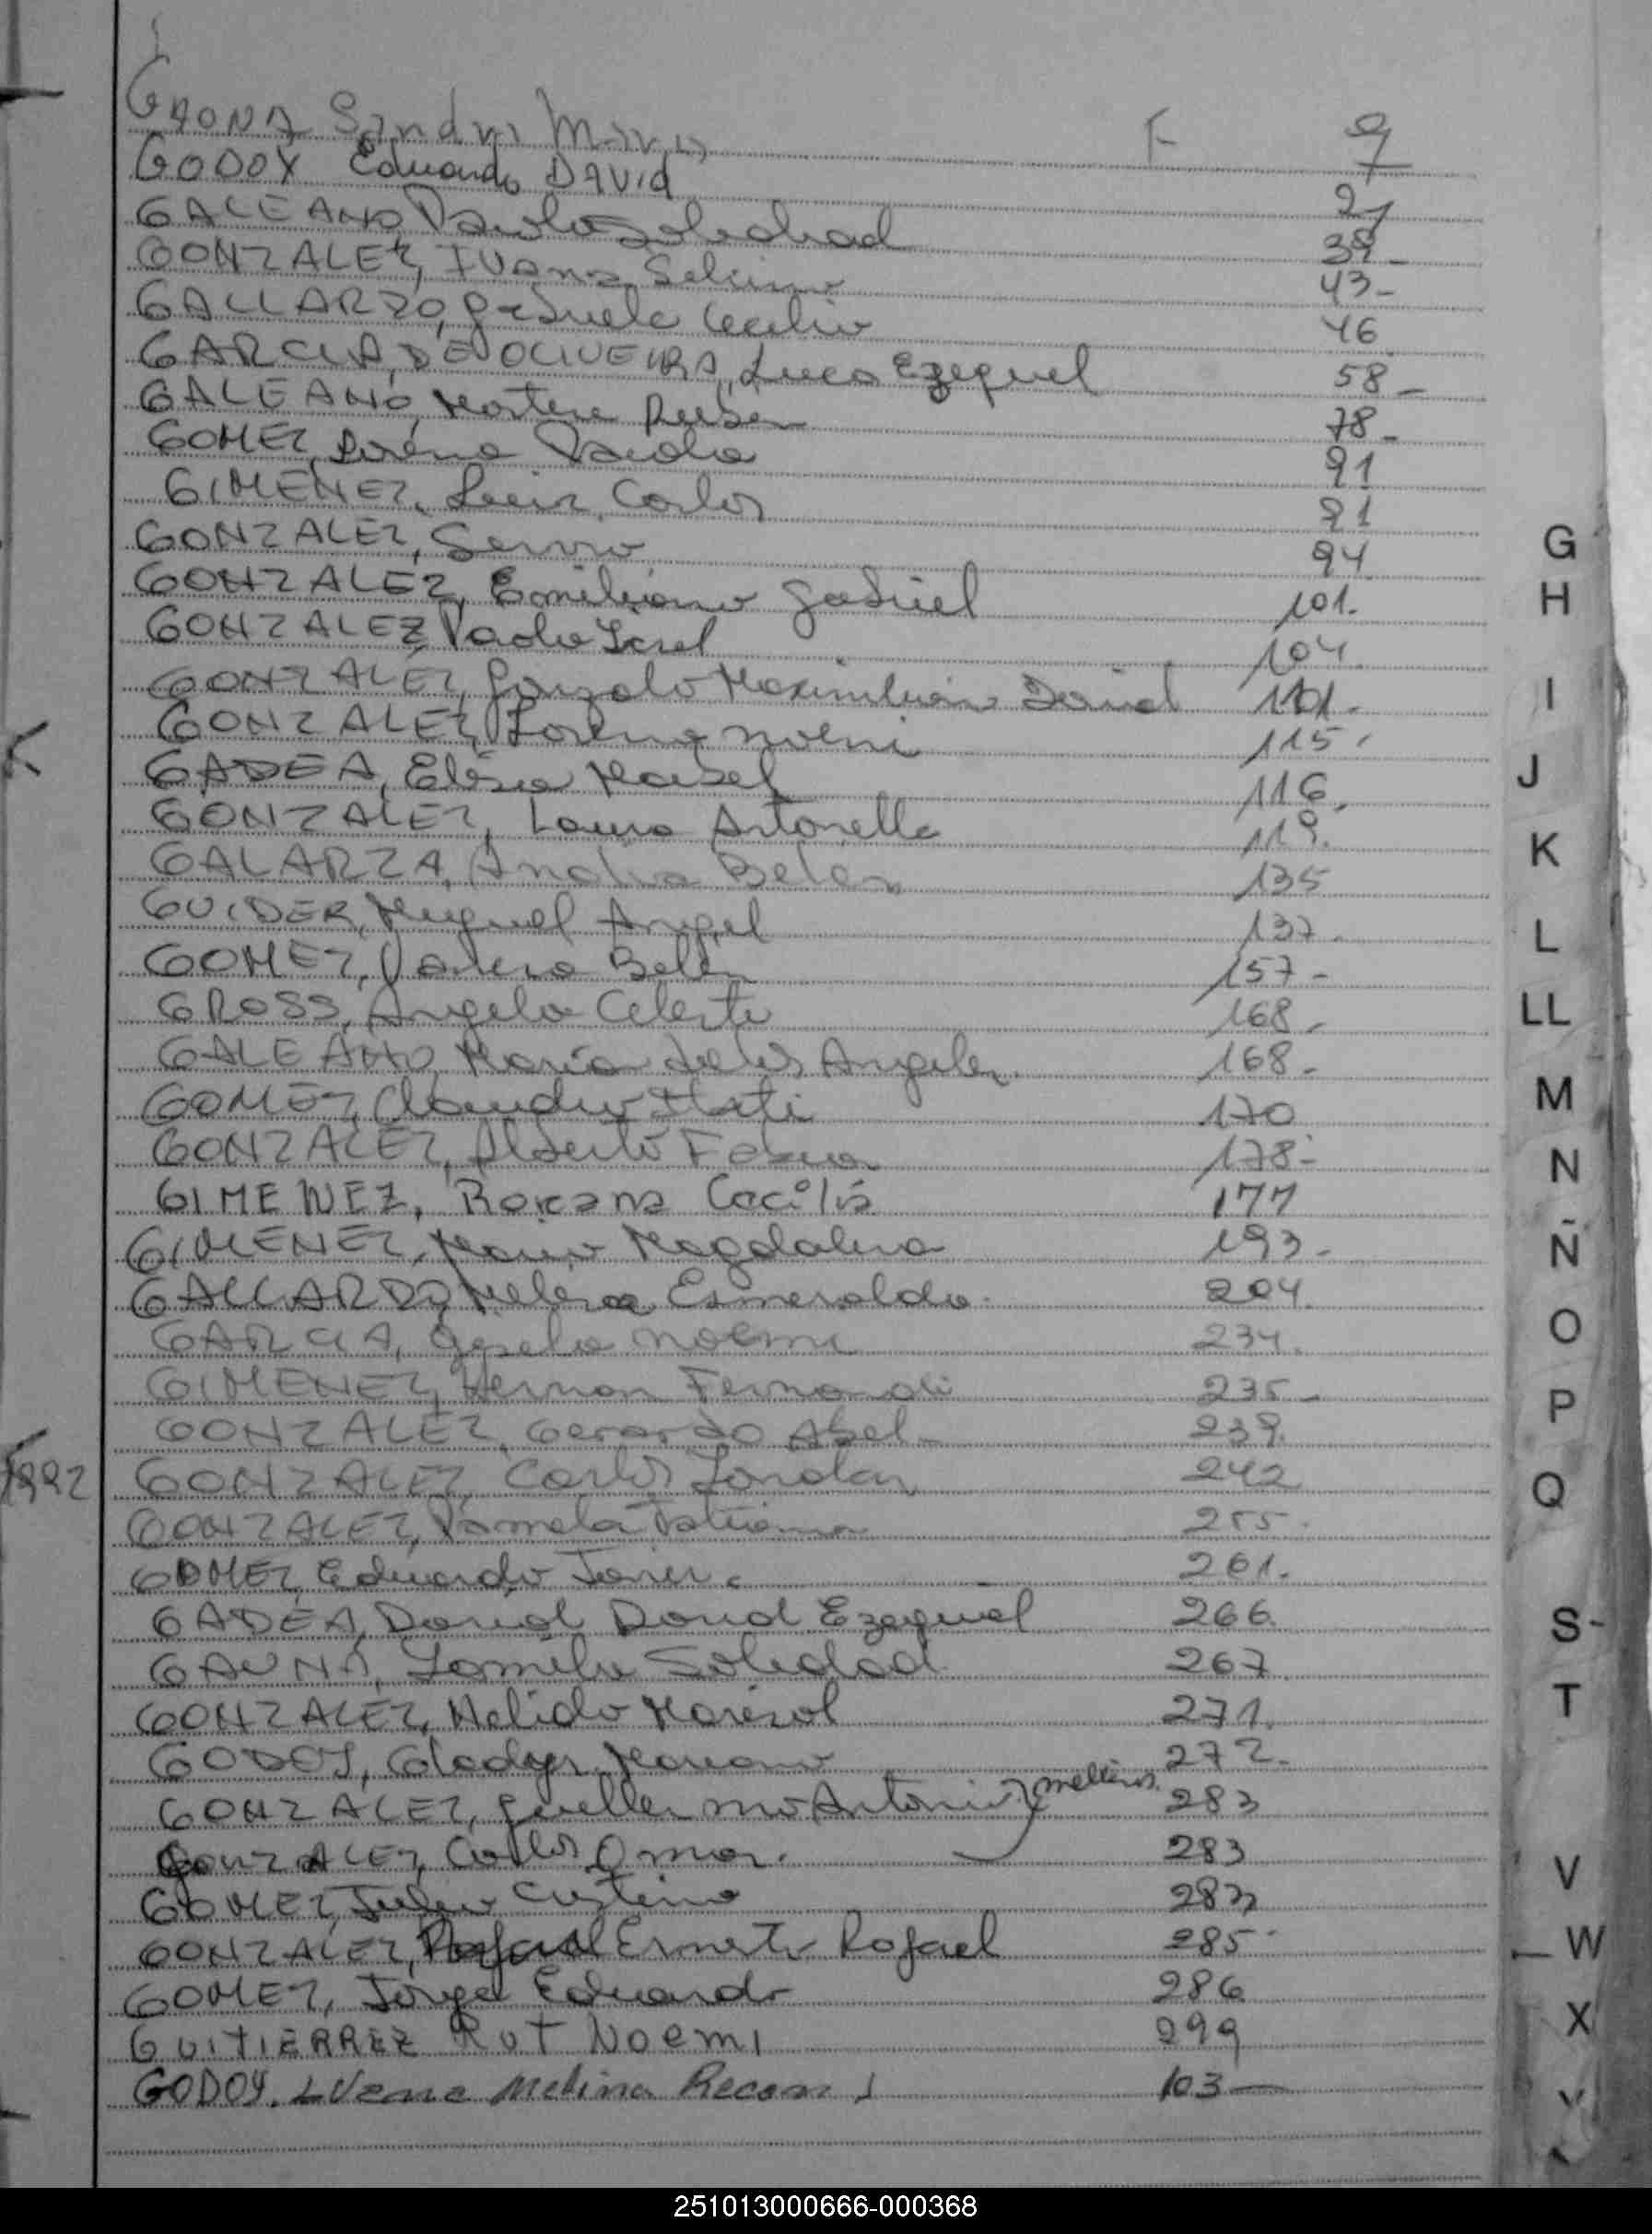 GAONA Sandra Maria F 9
GODOY Eduardo David 21
GALEANO, Paola Soledad 39-
GONZALEZ, Ivana Selima 43-
GALLARDO, Graciela Cecilia 46
GARCIA, DE OLIVEIRA, Luca Ezequiel 58-
GALEANO, Ruben 78-
GOMEZ, Paola 91
GIMENEZ, Luis Carlos 91
GONZALEZ, 94
GONZALEZ, Emiliano Gabriel 101.
GONZALEZ, Paola 104.
GONZALEZ, Gonzalo Maximiliano David 111.
GONZALEZ, Lorena Noemi 115.
GADEA, Elisa Mabel 116.
GONZALEZ, Laura Antonella 119.
GALARZA, Analia Belen 135
GUIDER, Miguel Angel 137.
GOMEZ, Vanesa Belen 157-
GROSS, Angela Celeste 168.
GALEANO, Maria de los Angeles. 168.
GOMEZ, Claudia 170
GONZALEZ, Alberto Fabian 178-
GIMENEZ, Roxana Cecilia 177
GIMENEZ, Maria Magdalena 193-
GALLARDO, Esmeralda. 204.
GARCIA, Gisela Noemi 234.
GIMENEZ, Hernan Fernando 235-
GONZALEZ, Gerardo Abel 239.
GONZALEZ, Carlos 242
GONZALEZ, Pamela Tatiana 255.
GOMEZ, Eduardo Javier. 261.
GADEA, Daniel David Ezequiel 266.
GAUNA, Soledad 267
GONZALEZ, Nelida Marisol 271.
GODOY, Gladys Mariana 272-
GONZALEZ, Guillermo Antonio mellizos. 283
GONZALEZ, Carlos Omar. 283
GOMEZ, Cristina 283
GONZALEZ, Ernesto Rafael 285
GOMEZ, Jorge Eduardo 286
GUITIERREZ Rut Noemi 299
GODOY, Melina 103—
1992
G
H
I
J
K
L
LL
M
N
Ñ
O
P
Q
S-
T
V
W
X
Y
251013000666-000368